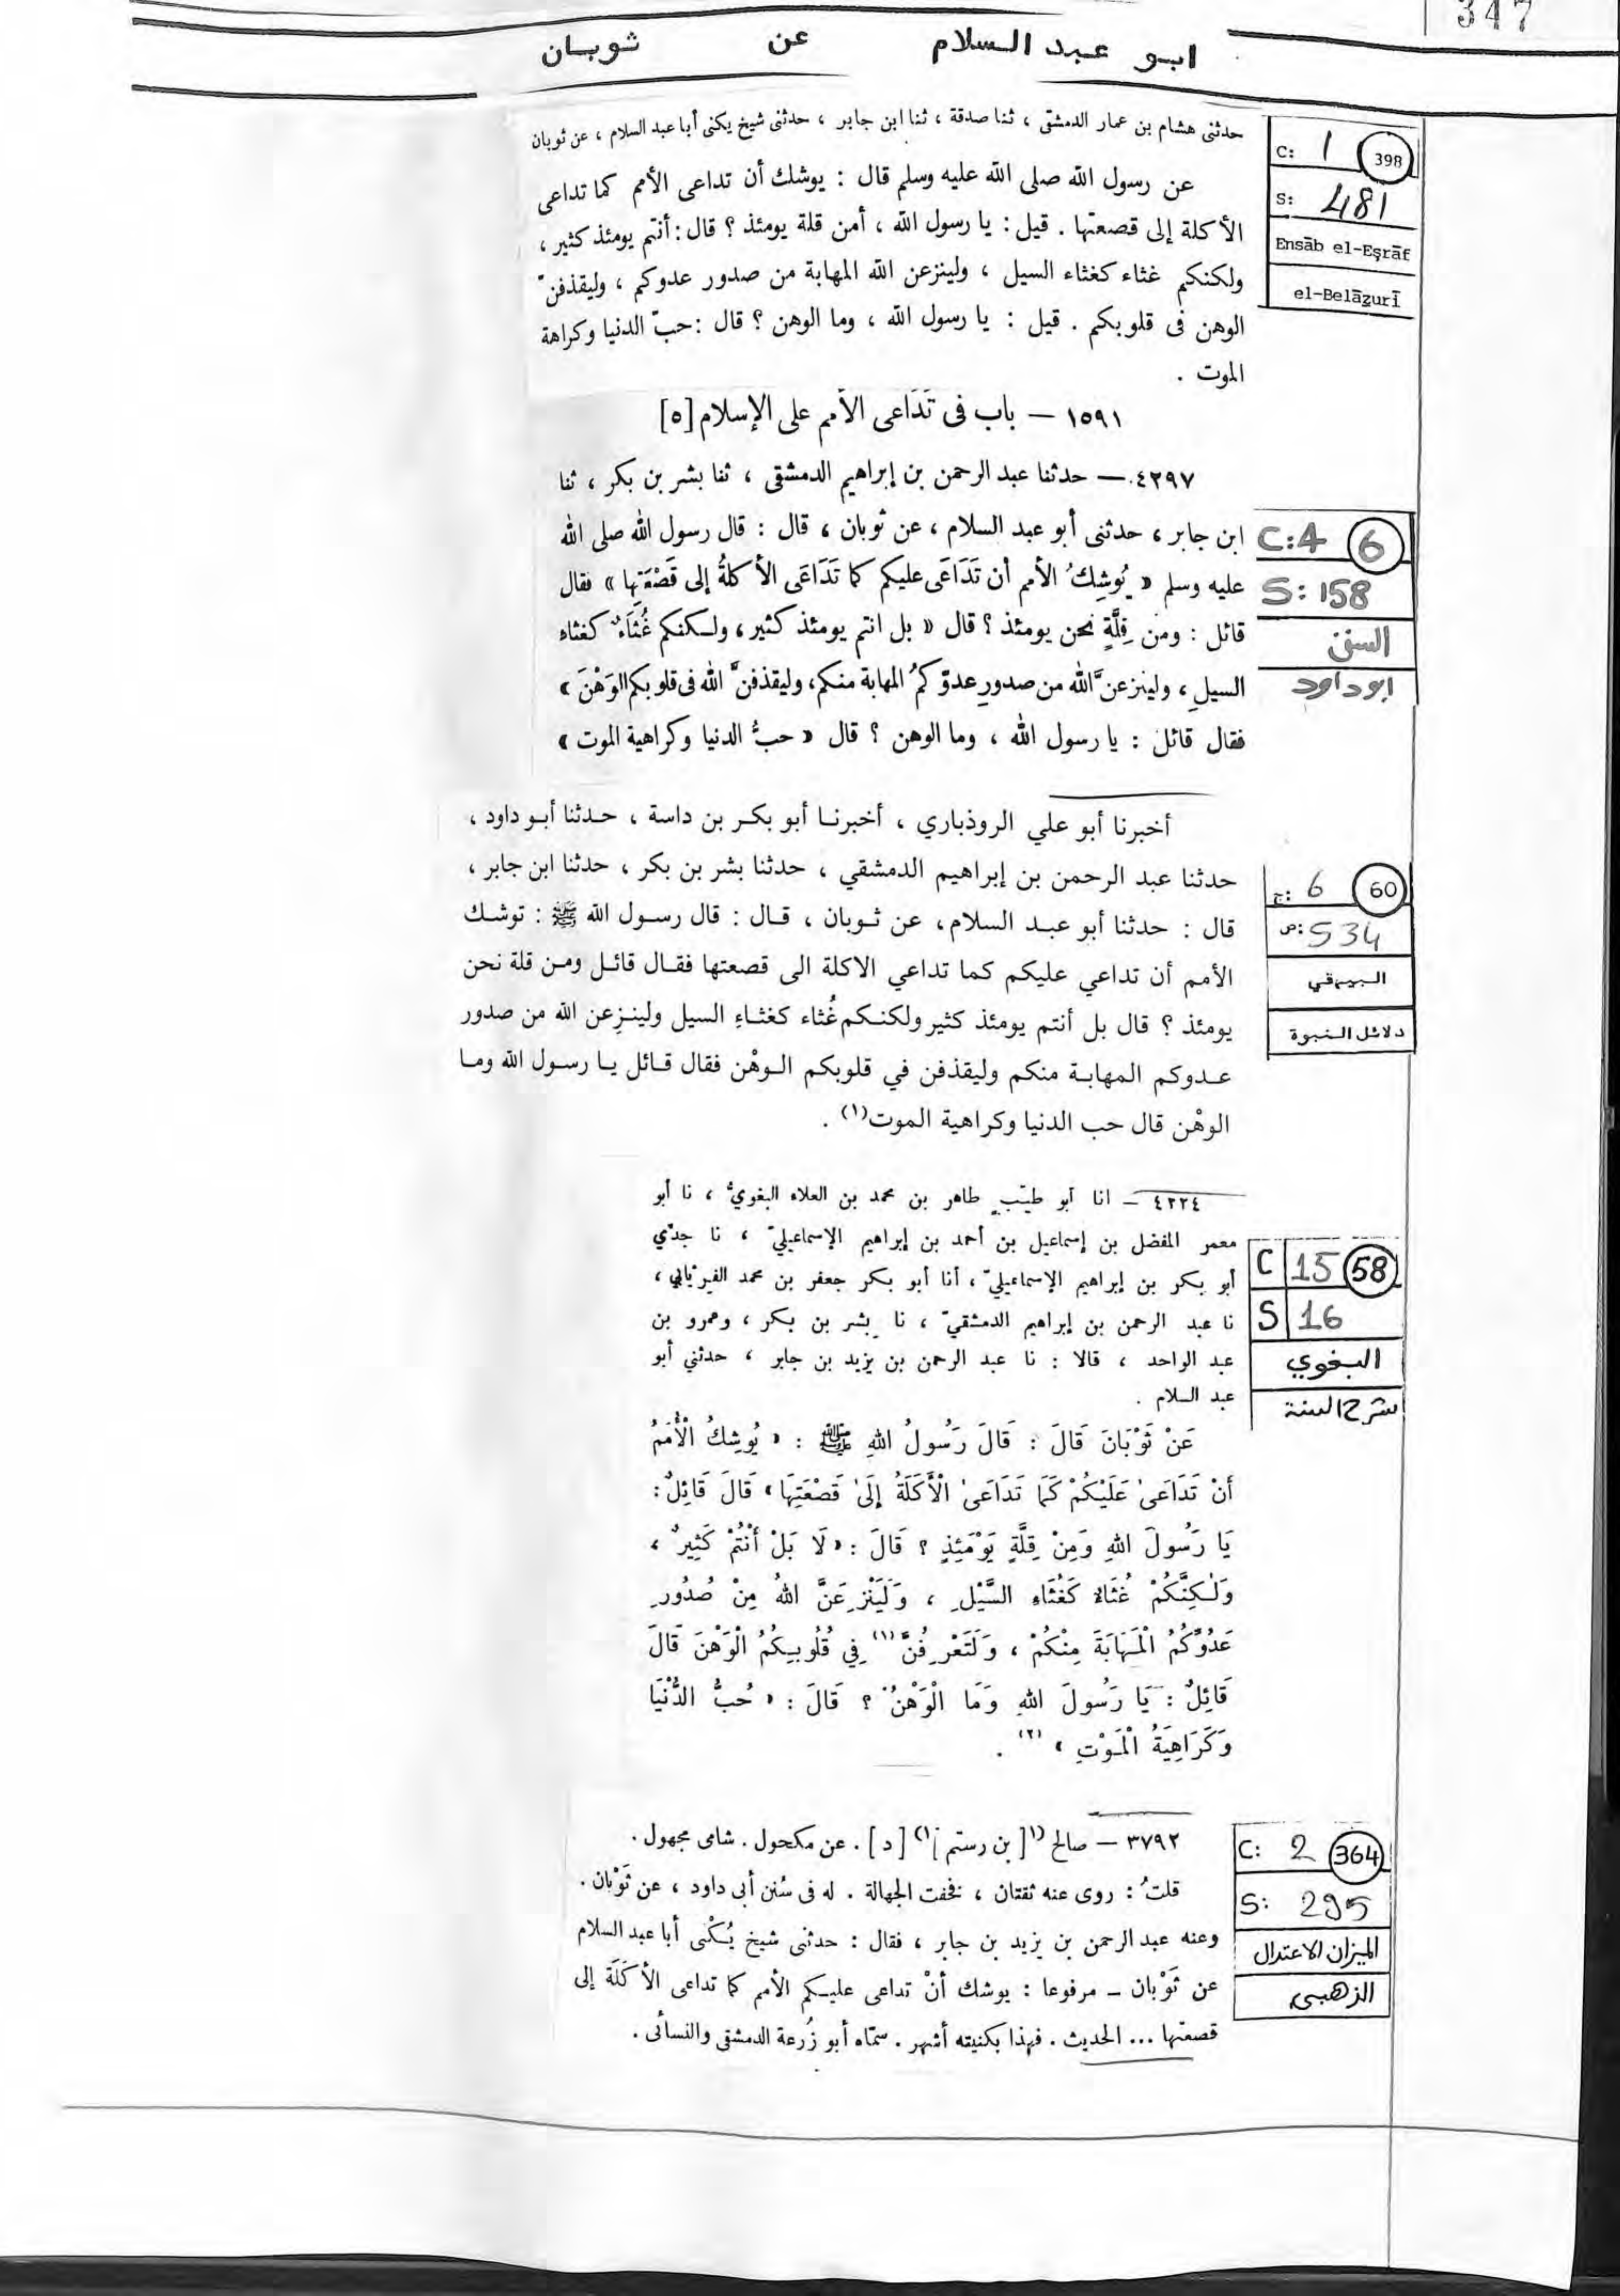 347
ابو عبد السلام عن ثوبان
حدثنى هشام بن عمار الدمشقى ، ثنا صدقة ، ثنا ابن جابر ، حدثنى شيخ يكنى أبا عبد السلام ، عن ثوبان
عن رسول الله صلى الله عليه وسلم قال : يوشك أن تداعى الأمم كما تداعى
الأكلة إلى قصعتها . قيل : يا رسول الله ، أمن قلة يومئذ ؟ قال : أنتم يومئذ كثير ،
ولكنكم غثاء كغثاء السيل ، ولينزعن الله المهابة من صدور عدوكم ، وليقذفنّ
الوهن فى قلوبكم . قيل : يا رسول الله ، وما الوهن ؟ قال : حبّ الدنيا وكراهة
الموت .
C: 1 398
S: 481
Ensāb el-Eşrāf
el-Belāzurī
١٥٩١ – باب فى تَدَاعى الأمم على الإسلام [٥]
٤٢٩٧ – حدثنا عبد الرحمن بن إبراهيم الدمشقى ، ثنا بشر بن بكر ، ثنا
ابن جابر ، حدثنى أبو عبد السلام ، عن ثوبان ، قال : قال رسول الله صلى الله
عليه وسلم « يُوشِكُ الأمم أن تَدَاعَى عليكم كما تَدَاعَى الأكلةُ إلى قَصْعَتِها » فقال
قائل : ومن قِلَّةٍ نحن يومئذ ؟ قال « بل انتم يومئذ كثير ، ولكنكم غُثَاءٌ كغثاء
السيلِ ، ولينزعنَّ الله من صدورِ عدوّكمُ المهابة منكم ، وليقذفنَّ الله فى قلوبكم الوَهْنَ »
فقال قائل : يا رسول الله ، وما الوهن ؟ قال « حبُّ الدنيا وكراهية الموت »
C: 4 6
S: 158
السنن
ابو داود
أخبرنا أبو علي الروذباري ، أخبرنا أبو بكر بن داسة ، حدثنا أبو داود ،
حدثنا عبد الرحمن بن إبراهيم الدمشقي ، حدثنا بشر بن بكر ، حدثنا ابن جابر ،
قال : حدثنا أبو عبد السلام ، عن ثوبان ، قال : قال رسول الله ﷺ : توشك
الأمم أن تداعي عليكم كما تداعي الاكلة الى قصعتها فقال قائل ومن قلة نحن
يومئذ ؟ قال بل أنتم يومئذ كثير ولكنكم غُثاء كغثاءِ السيل ولينزِعن الله من صدور
عدوكم المهابة منكم وليقذفن في قلوبكم الوهْن فقال قائل يا رسول الله وما
الوهْن قال حب الدنيا وكراهية الموت(١) .
ج: 6 60
ص: 534
البيهقي
دلائل النبوة
٤٢٢٤ – انا أبو طيّب طاهر بن محمد بن العلاء البغويُّ ، نا أبو
معمر المفضل بن إسماعيل بن أحمد بن إبراهيم الإسماعيليّ ، نا جدّي
أبو بكر بن إبراهيم الإسماعيليّ ، أنا أبو بكر جعفر بن محمد الفِرْيَابي ،
نا عبد الرحمن بن إبراهيم الدمشقيّ ، نا بشر بن بكر ، وعمرو بن
عبد الواحد ، قالا : نا عبد الرحمن بن يزيد بن جابر ، حدثني أبو
عبد السلام .
عَنْ ثَوْبَانَ قَالَ : قَالَ رَسُولُ اللهِ ﷺ : « يُوشِكُ الْأُمَمُ
أَنْ تَدَاعَىٰ عَلَيْكُمْ كَمَا تَدَاعَىٰ الْأَكَلَةُ إِلَىٰ قَصْعَتِهَا » قَالَ قَائِلٌ :
يَا رَسُولَ اللهِ وَمِنْ قِلَّةٍ يَوْمَئِذٍ ؟ قَالَ : « لَا بَلْ أَنْتُمْ كَثِيرٌ ،
وَلٰكِنَّكُمْ غُثَاءٌ كَغُثَاءِ السَّيْلِ ، وَلَيَنْزِعَنَّ اللهُ مِنْ صُدُورِ
عَدُوِّكُمُ الْمَهَابَةَ مِنْكُمْ ، وَلَتَعْرِفُنَّ(١) فِي قُلُوبِكُمُ الْوَهْنَ قَالَ
قَائِلٌ : يَا رَسُولَ اللهِ وَمَا الْوَهْنُ ؟ قَالَ : « حُبُّ الدُّنْيَا
وَكَرَاهِيَةُ الْمَوْتِ » (٢) .
C 15 58
S 16
البغوي
شرح السنة
٣٧٩٢ – صالح (١[ بن رستم ]١) [ د ] . عن مكحول . شامى مجهول .
قلتُ : روى عنه ثقتان ، فخفت الجهالة . له فى سُنن أبى داود ، عن ثَوْبان .
وعنه عبد الرحمن بن يزيد بن جابر ، فقال : حدثنى شيخ يُكْنى أبا عبد السلام
عن ثَوْبان – مرفوعا : يوشك أنْ تداعى عليكم الأمم كما تداعى الأكَلَة إلى
قصعتها ... الحديث . فهذا بكنيته أشهر . سمّاه أبو زُرعة الدمشقى والنسائى .
C: 2 364
S: 295
الميزان الاعتدال
الذهبى